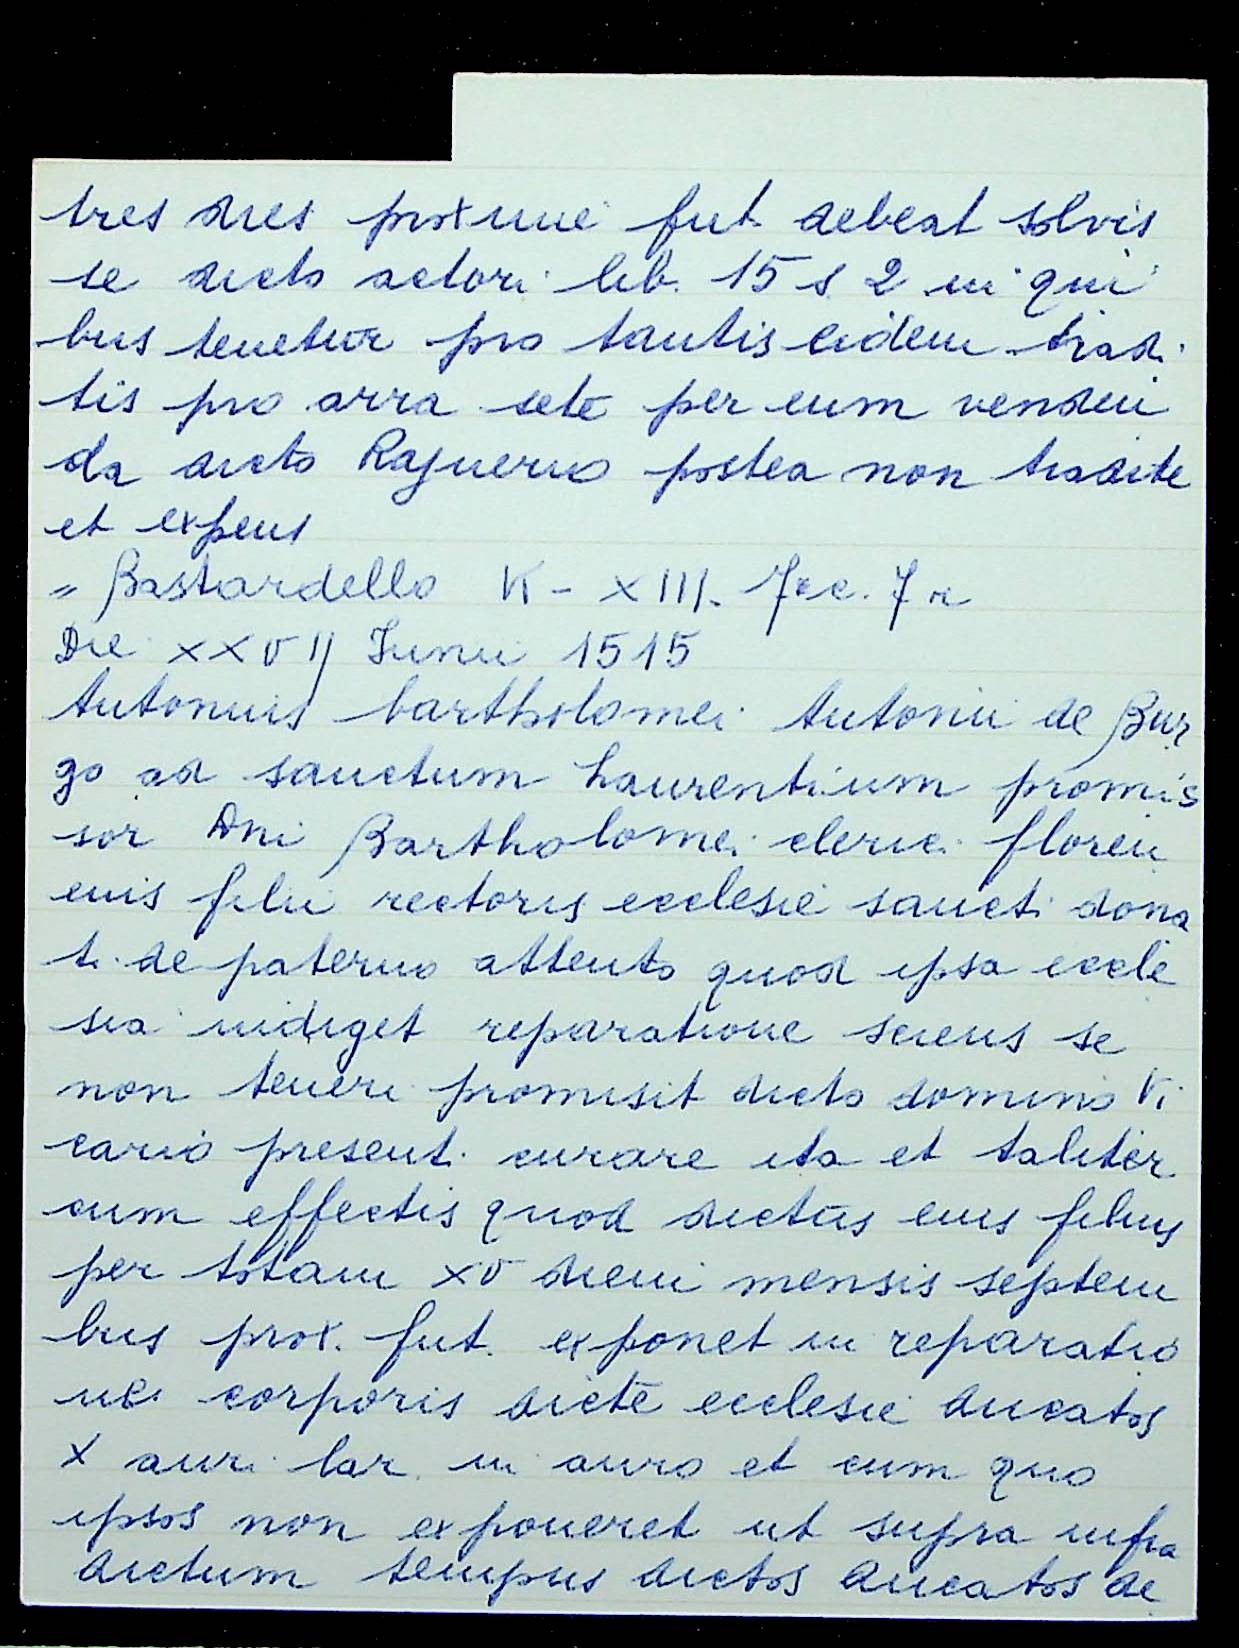 tres dies proxime fut. debeat solvis
se dicto actori lib. 15 s 2 in qui
bus tenetur pro tantis eidem tradi
tis pro arra sete per eum vendeu
da dicto Raynerio postea non tradite
et expens
" Bastardello VI - XIII. 7
Die XXVII Junii 1515
Antonius bartholomei Antonii de Bur
go ad sanctum Laurentium promis
sor Dni Bartholomei clerici floren
euis filii rectoris ecclesie sancti dona
ti de paterno attento quod ipsa eccle
sia indiget reparatione sciens se
non teneri promisit dicto domino Vi
cario presenti curare ita et taliter
cum effectis quod dictus eius filius
per totam XV diem mensis septem
bris prox. fut. exponet in reparatio
nei corporis dicte ecclesie ducatos
X auri lar. in auro et cum quo
ipsos non exponeret ut supra infra
dictum tempus dictos ducatos de